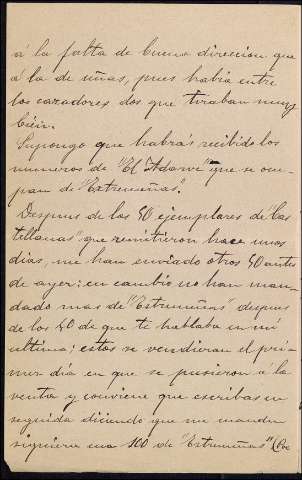 á la falta de buena direccion que
á la de uñas, pues habia entre
los cazadores dos que tiraban muy
bien.
Supongo que habrás recibido los
numeros de "El Adarve" que se ocu-
pan de "Extremeñas".
Despues de los 50 ejemplares de "Cas
tellanas" que remitieron hace unos
dias, me han enviado otros 50 antes
de ayer: en cambio no han man-
dado mas de "Extremeñas" despues
de los 40 de que te hablaba en mi
ultima; estos se vendieron el pri-
mer dia en que se pusieron á la
venta y conviene que escribas en
seguida diciendo que me manden
siquiera unas 100 de "Extremeñas" (Por